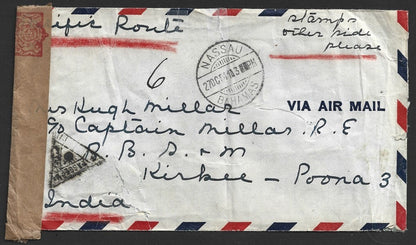 ific Route
stamps
other side
please
6
NASSAU
BAHAMAS
VIA AIR MAIL
s Hugh Millar
c/o Captain Millas. R.E
R.B.S + M
Kirkee - Poona 3
India